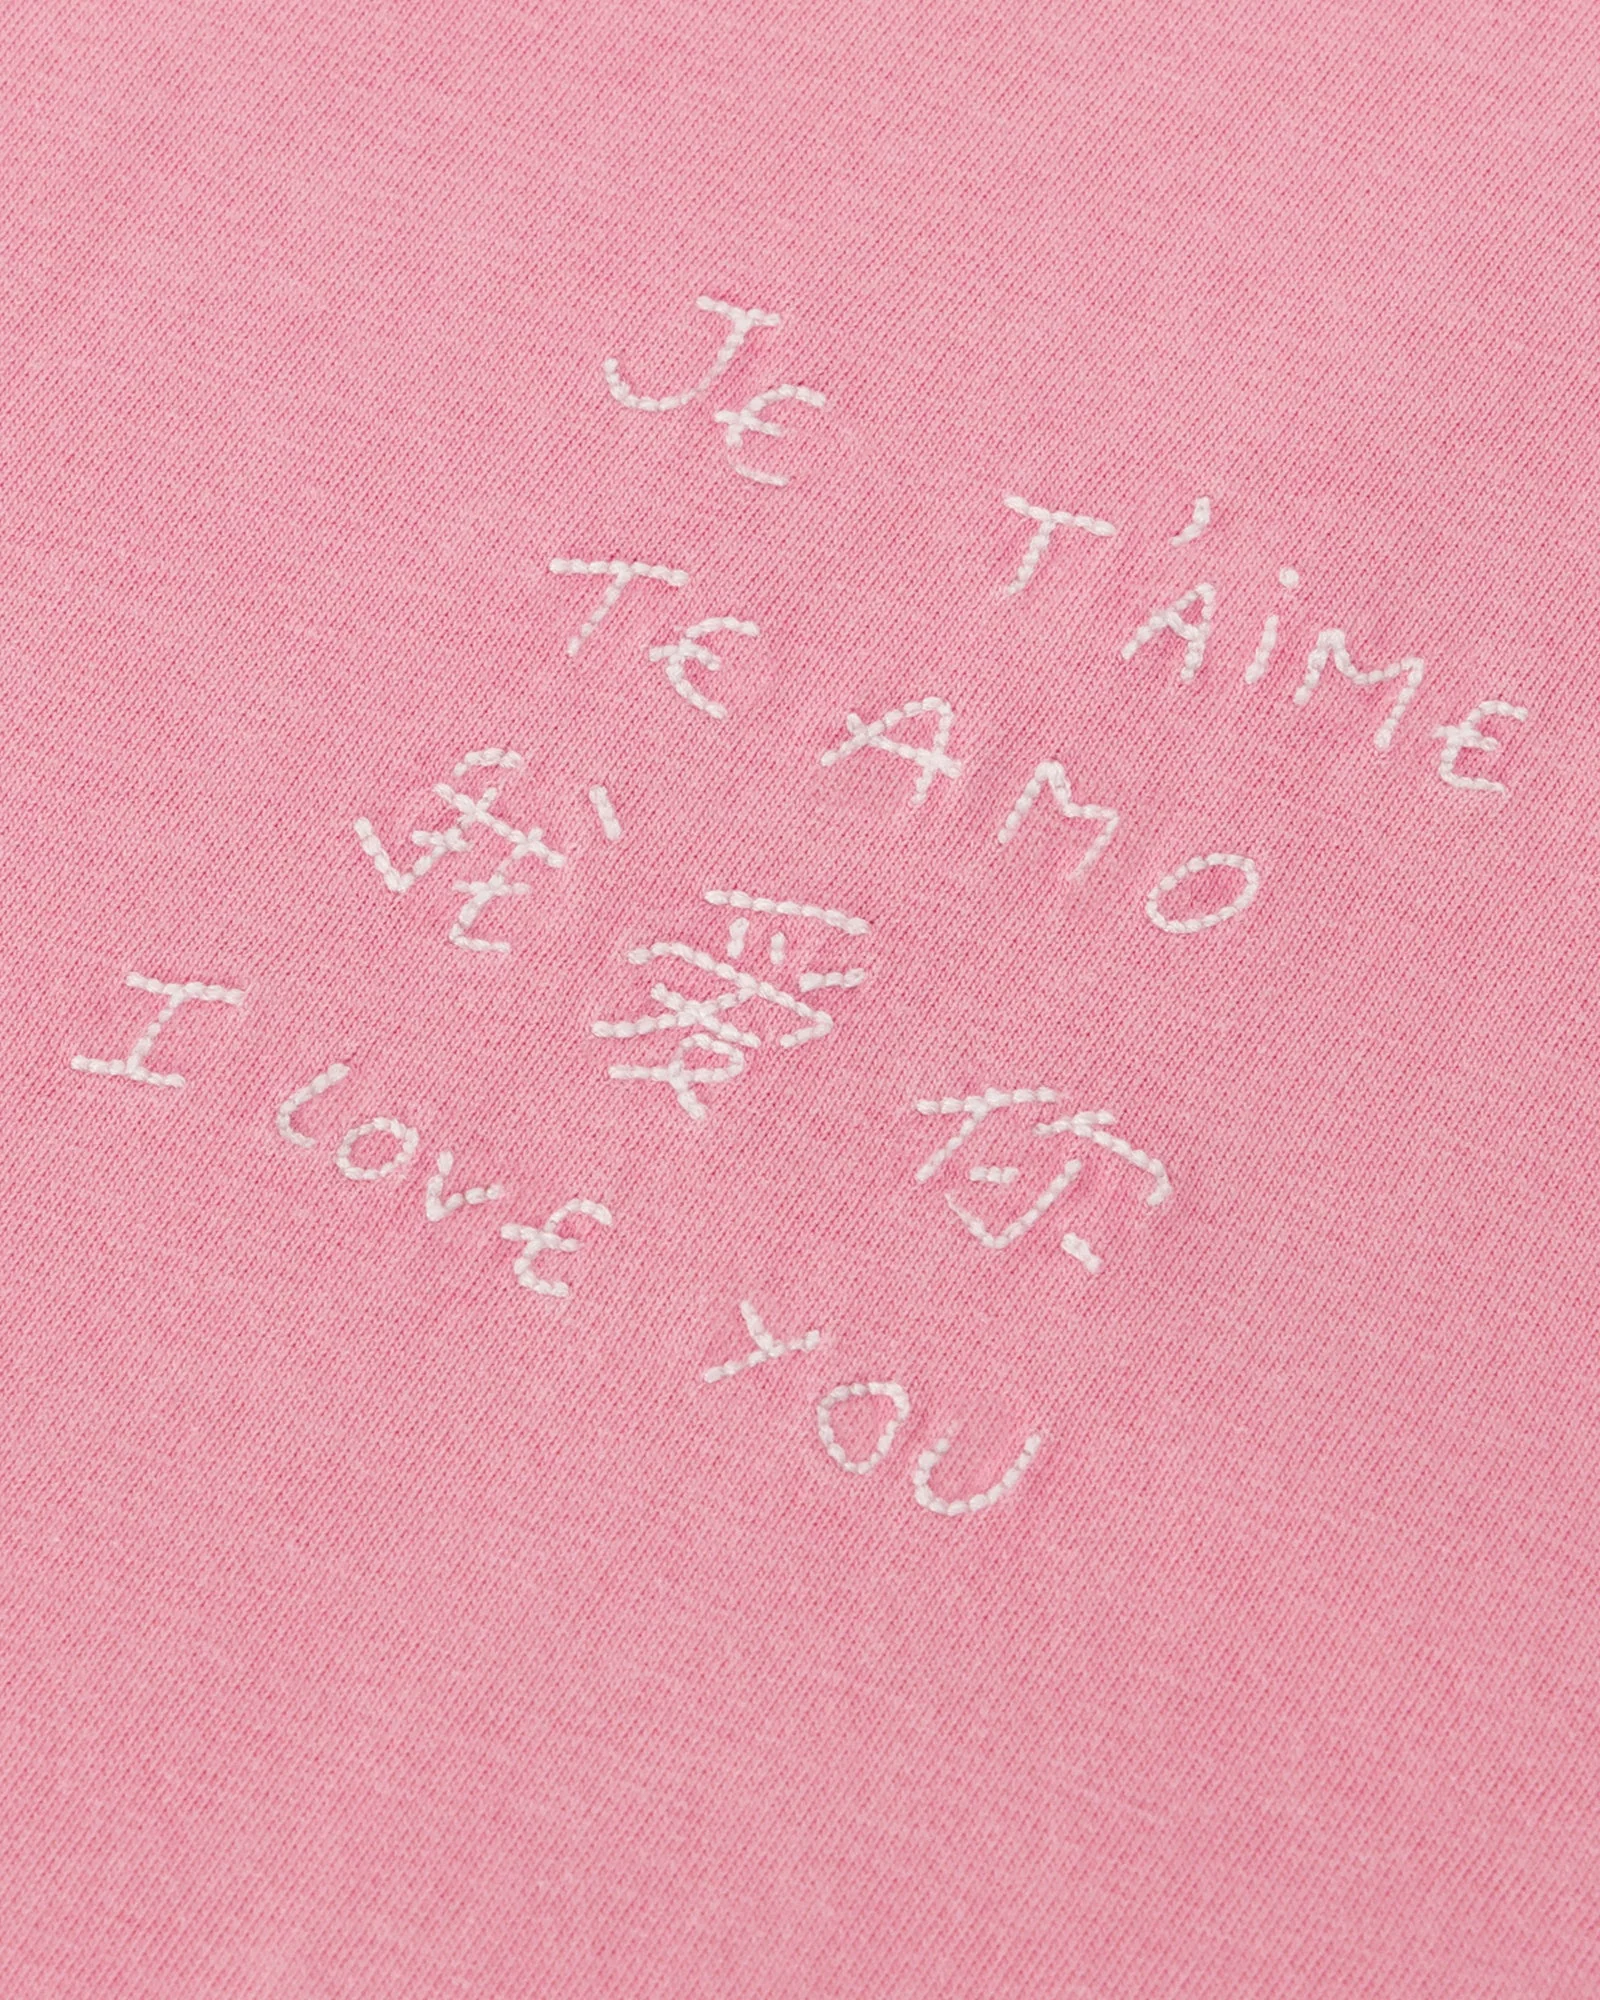 JE T'AiME
TE AMO
我爱你
I lovE YOU